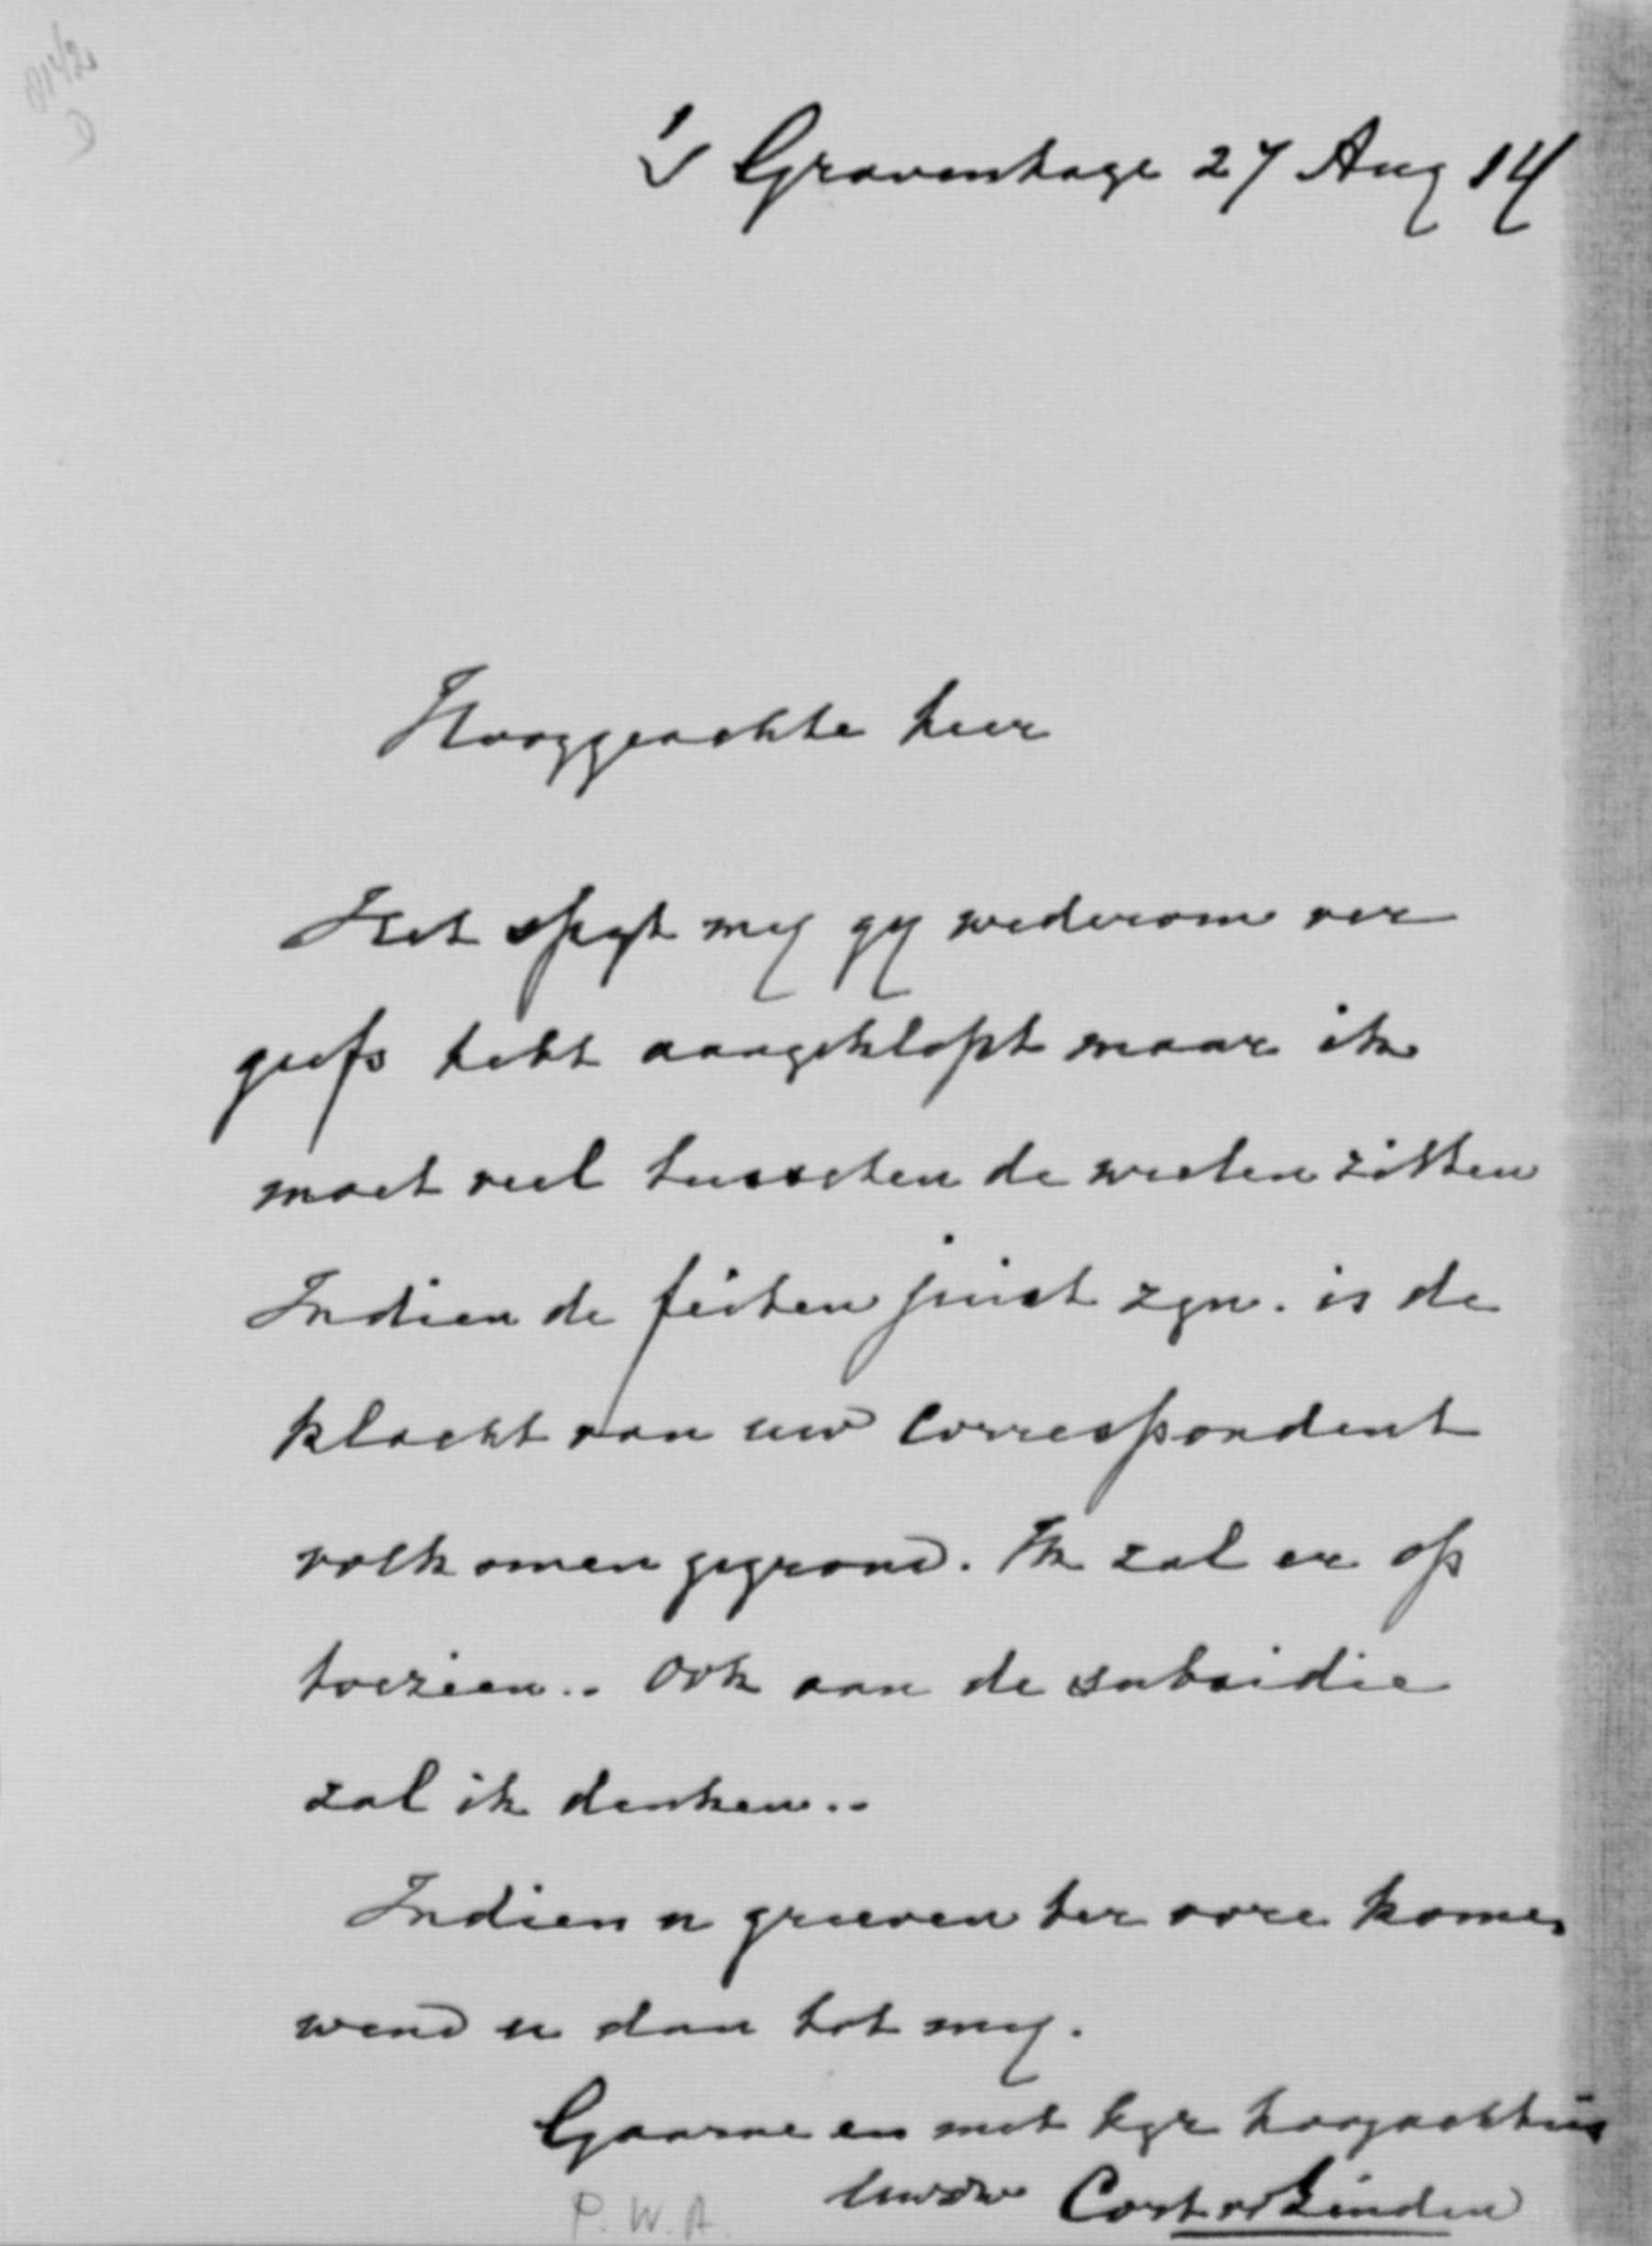 's Gravenhage 27 Aug 14
Hooggeachte heer
Het spijt mij gij wederom ver
geefs hebt aangeklopt maar ik
moet veel tusschen de wielen zitten
Indien de feiten juist zijn. is de
klacht van uw Correspondent
volkomen gegrond. Ik zal er op
toezien.. Ook aan de subsidie
zal ik denken..
Indien u grieven ter oore komen
wend u dan tot mij.
Gaarne en met hgr hoogachting
uwdw Cort vd Linden
P. W. A.